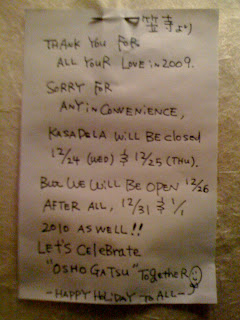 笠寺より
THANK YOU FOR
ALL YOUR LOVE in 2009.
SORRY FOR
ANY INCONVENIENCE,
KASADELA WILL BE CLOSED
12/24 (WED) & 12/25 (THU).
BUT WE WILL BE OPEN 12/26
AFTER ALL, 12/31 & 1/1
2010 AS WELL!!
LET'S CELEBRATE
"OSHOGATSU" TOGETHER
-HAPPY HOLIDAY TO ALL-